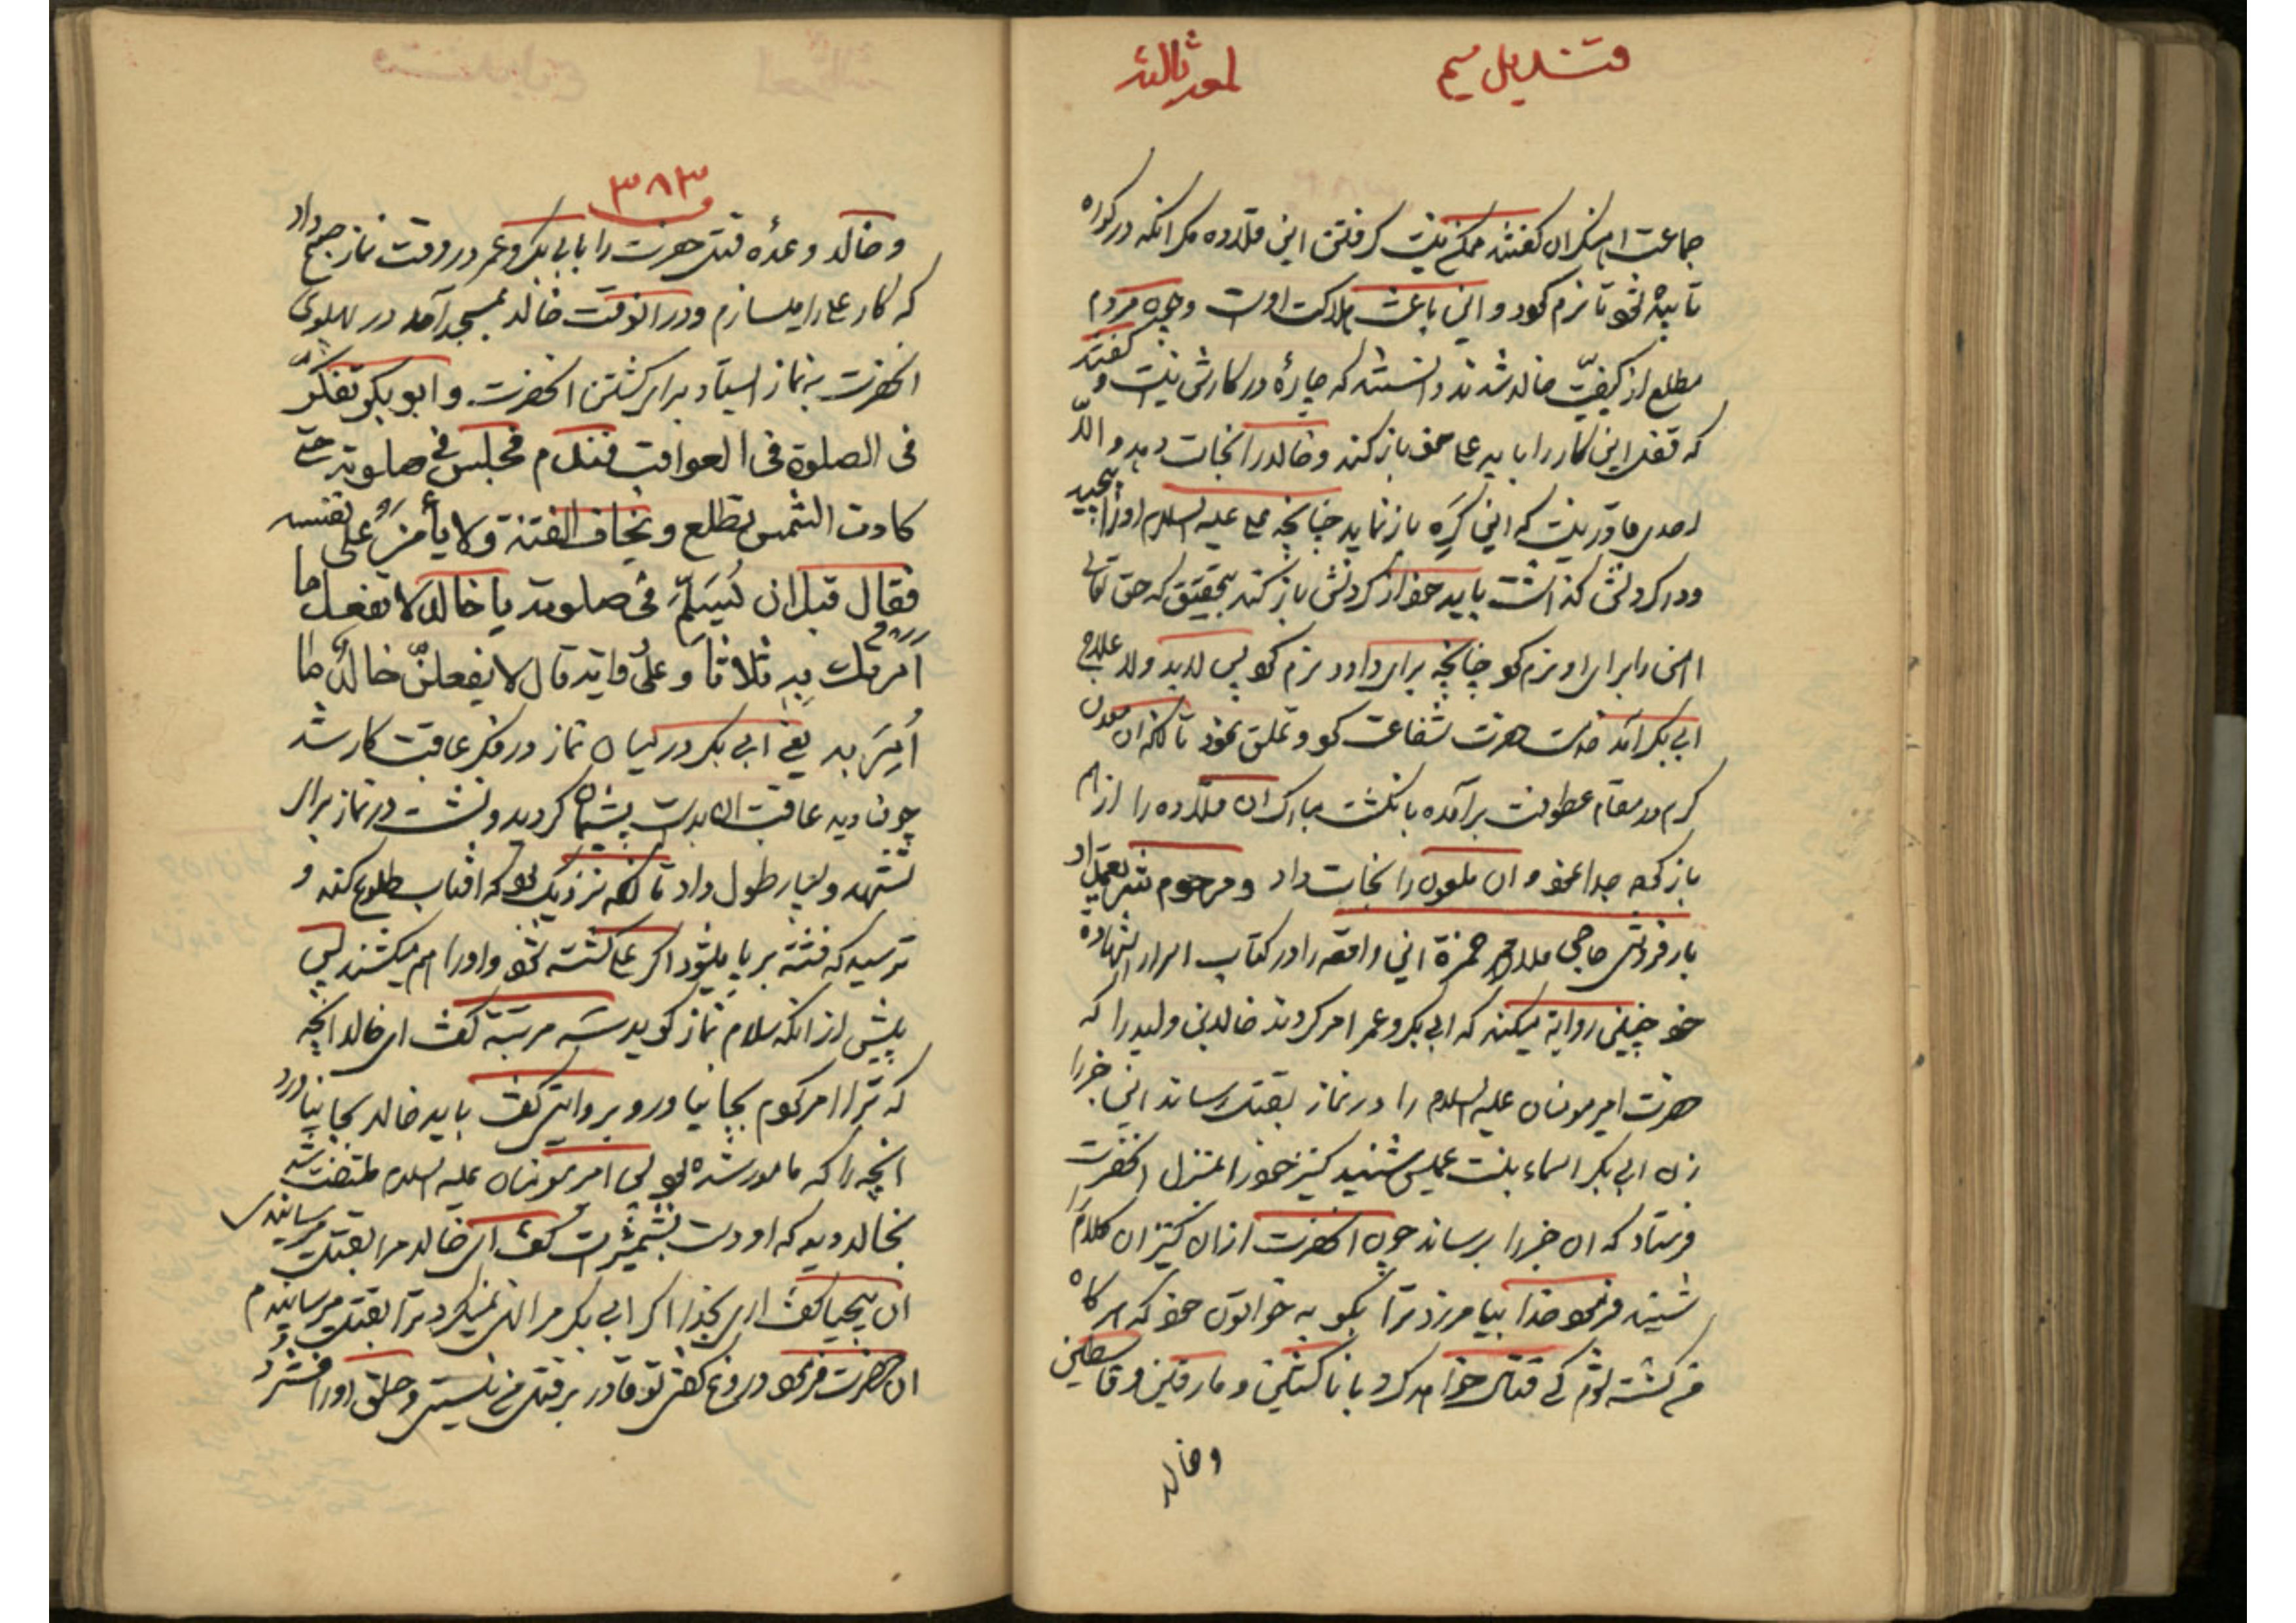 قندیل سیم
لمعه ثالثه
جماعت اهنکران کفتند ممکن نیست کرفتن این قلاده مکر انکه در کوره
تابیده شود تا نرم کردد و این باعث هلاکت اوست وجوه مردم
مطلع از کیفیّت خالد شدند دانستند که چارهٔ در کارش نیست و کفتند
که قفل این کار را باید علی خود باز کند و خالد را نجات دهد و الّا
احدی قادر نیست که این کره باز نماید چنانچه علی علیه السلام او را پیچید
و در کردنش کذاشت باید خود از کردنش باز کند بتحقیق که حق تعالی
اهن را برای او نرم کرد چنانچه برای داود نرم کرد پس لابد ولا علاج
ابی بکر آمد خدمت حضرت شفاعت کرد و تملق نمود تا انکه ان معدن
کرم در مقام عطوفت برآمده با نکشت مبارک ان قلاده را از هم
باز کرده جدا نمود و ان ملعون را نجات داد و مرحوم شریعتمدار
بارفروش حاجی ملا محمد حمزة این واقعه را در کتاب اسرار الشهادة
خود چنین روایة میکند که ابی بکر و عمر امر کردند خالد بن ولید را که
حضرت امیر مومنان علیه السلام را در نماز بقتل رساند این خبر را
زن ابی بکر اسماء بنت عمیس شنید کنیز خود را بمنزل انحضرت
فرستاد که ان خبر را برساند چون انحضرت از ان کنیز ان کلام را
شنید فرمود خدا بیامرزد ترا بکو به خواتون خود که هر کاه
من کشته شوم کی قتال خواهد کرد با ناکثین و مارقین و قاسطین
و خالد
۳۸۳
و خالد وعدهٔ قتل حضرت را با ابی بکر و عمر در وقت نماز صبح داد
که کار علی را میسازم و در انوقت خالد بمسجد آمد در پهلوی
انحضرت به نماز ایستاد برای کشتن انحضرت و ابو بکر تفکّر
فی الصلوة فی العواقب فندم فجلس فی صلوته حتی
کادت الشمس تطلع و یخاف الفتنة و لا یأمن علی نفسه
فقال قبل ان یُسَلِّمَ فی صلوته یا خالد لا تفعل ما
امرتک بِهِ ثلاثاً و علی قایته قال لا یفعلنّ خالدٌ ما
اُمِرَ به یعنی ابی بکر در میان نماز در فکر عاقبت کار شد
چون دید عاقبت ان بدست پشیمان کردید و نشست در نماز برای
تشهد و بسیار طول داد تا انکه نزدیک بود که افتاب طلوع کند و
ترسید که فتنه بر پا میشود اکر علی کشته شود و او را هم میکشند پس
پیش از انکه سلام نماز کوید سه مرتبه کفت ای خالد انچه
که ترا امر کردم بجا نیاور و بروایتی کفت باید خالد بجا نیاورد
انچه را که مامور شده بود پس امیر مومنان علیه السلام ملتفت شد
بخالد دید که او دست بشمشیرست کفت ای خالد مرا بقتل میرسانیدی
ان بیحیا کفت اری بخدا اکر ابی بکر مرا نهی نمیکرد ترا بقتل میرسانیدم
ان حضرت فرمود دروغ کفتی تو قادر بر قتل من نیستی و حلق او را فشرد